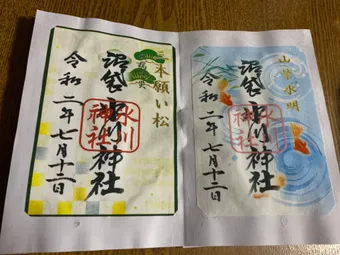 山紫水明
沼袋氷川神社
氷川神社
令和二年七月十二日
三本願い松
沼袋氷川神社
氷川神社
令和二年七月十二日